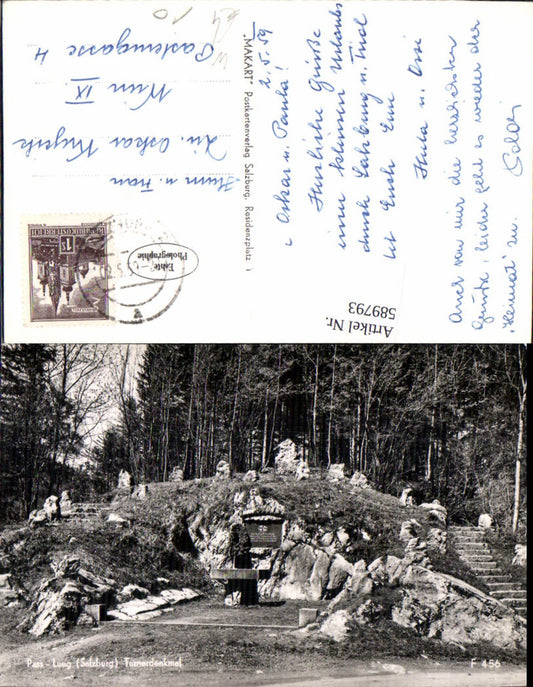 2. 5. 59
" Oskar u. Paula!
Herzliche Grüße
einer kleinen Urlaubs
durch Salzburg u. Tirol
Euch Eure
u. Ossi
Auch von mir die herzlichsten
Grüße, leider geht es wieder der
"Heimat" zu.
Herrn u. Frau
Oskar
Wien IX
4
"MAKART" Postkartenverlag Salzburg, Residenzplatz
Echte
Photographie
REPUBLIK ÖSTERREICH
Artikel Nr.
589793
Pass - Lueg (Salzburg) Turnerdenkmal
F 456